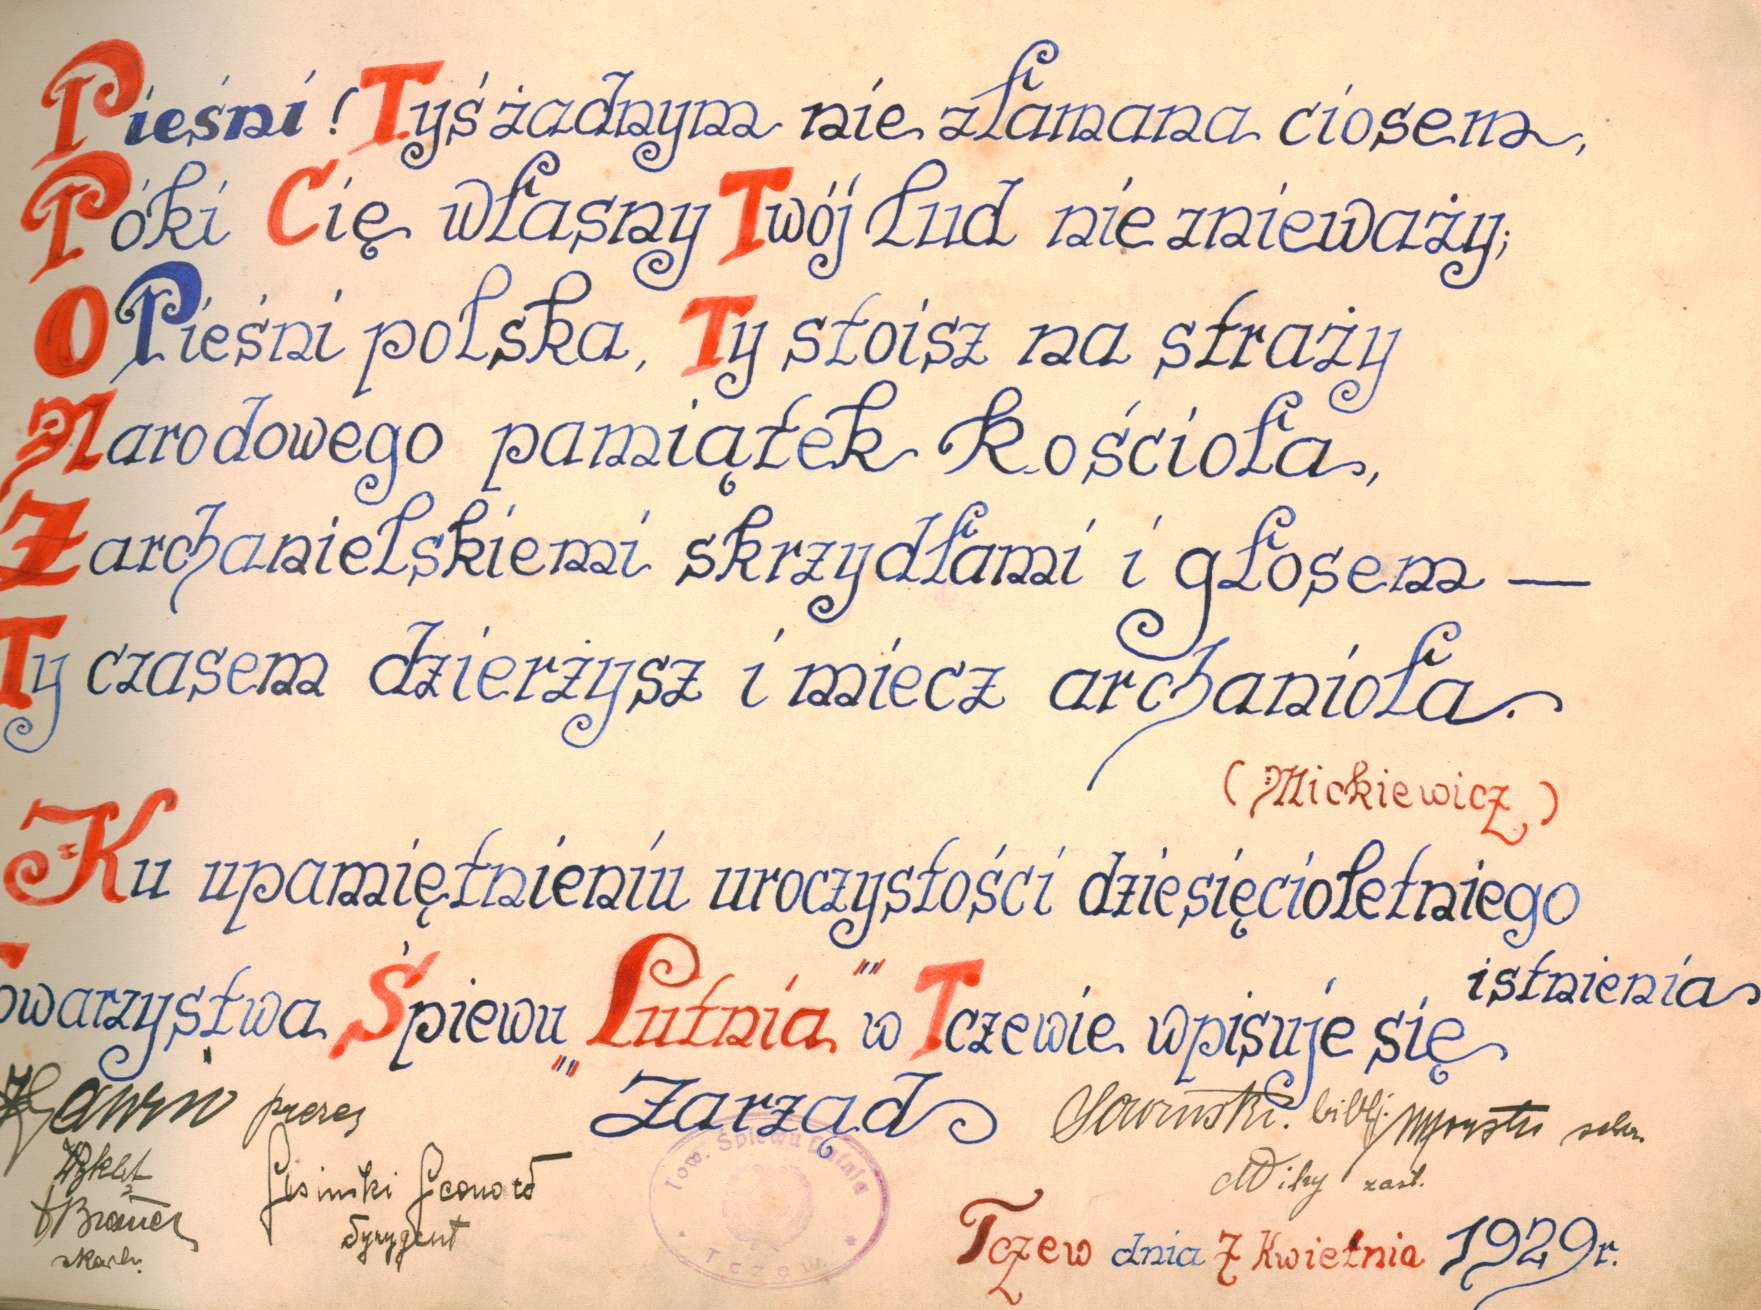 Pieśni! Tyś żadnym nie złamana ciosem,
Póki Cię własny Twój lud nie znieważy;
O Pieśni polska, Ty stoisz na straży
Narodowego pamiątek Kościoła,
Z archanielskiemi skrzydłami i głosem —
Ty czasem dzierżysz i miecz archanioła.
(Mickiewicz)
Ku upamiętnieniu uroczystości dziesięcioletniego
istnienia
Towarzystwa Śpiewu "Lutnia" w Tczewie wpisuje się
Zarząd
prezes
bibl.
Lisiński Leonard
dyrygent
zast.
skarb.
Tow. Śpiewu
Tczew
Tczew dnia 7 Kwietnia 1929 r.